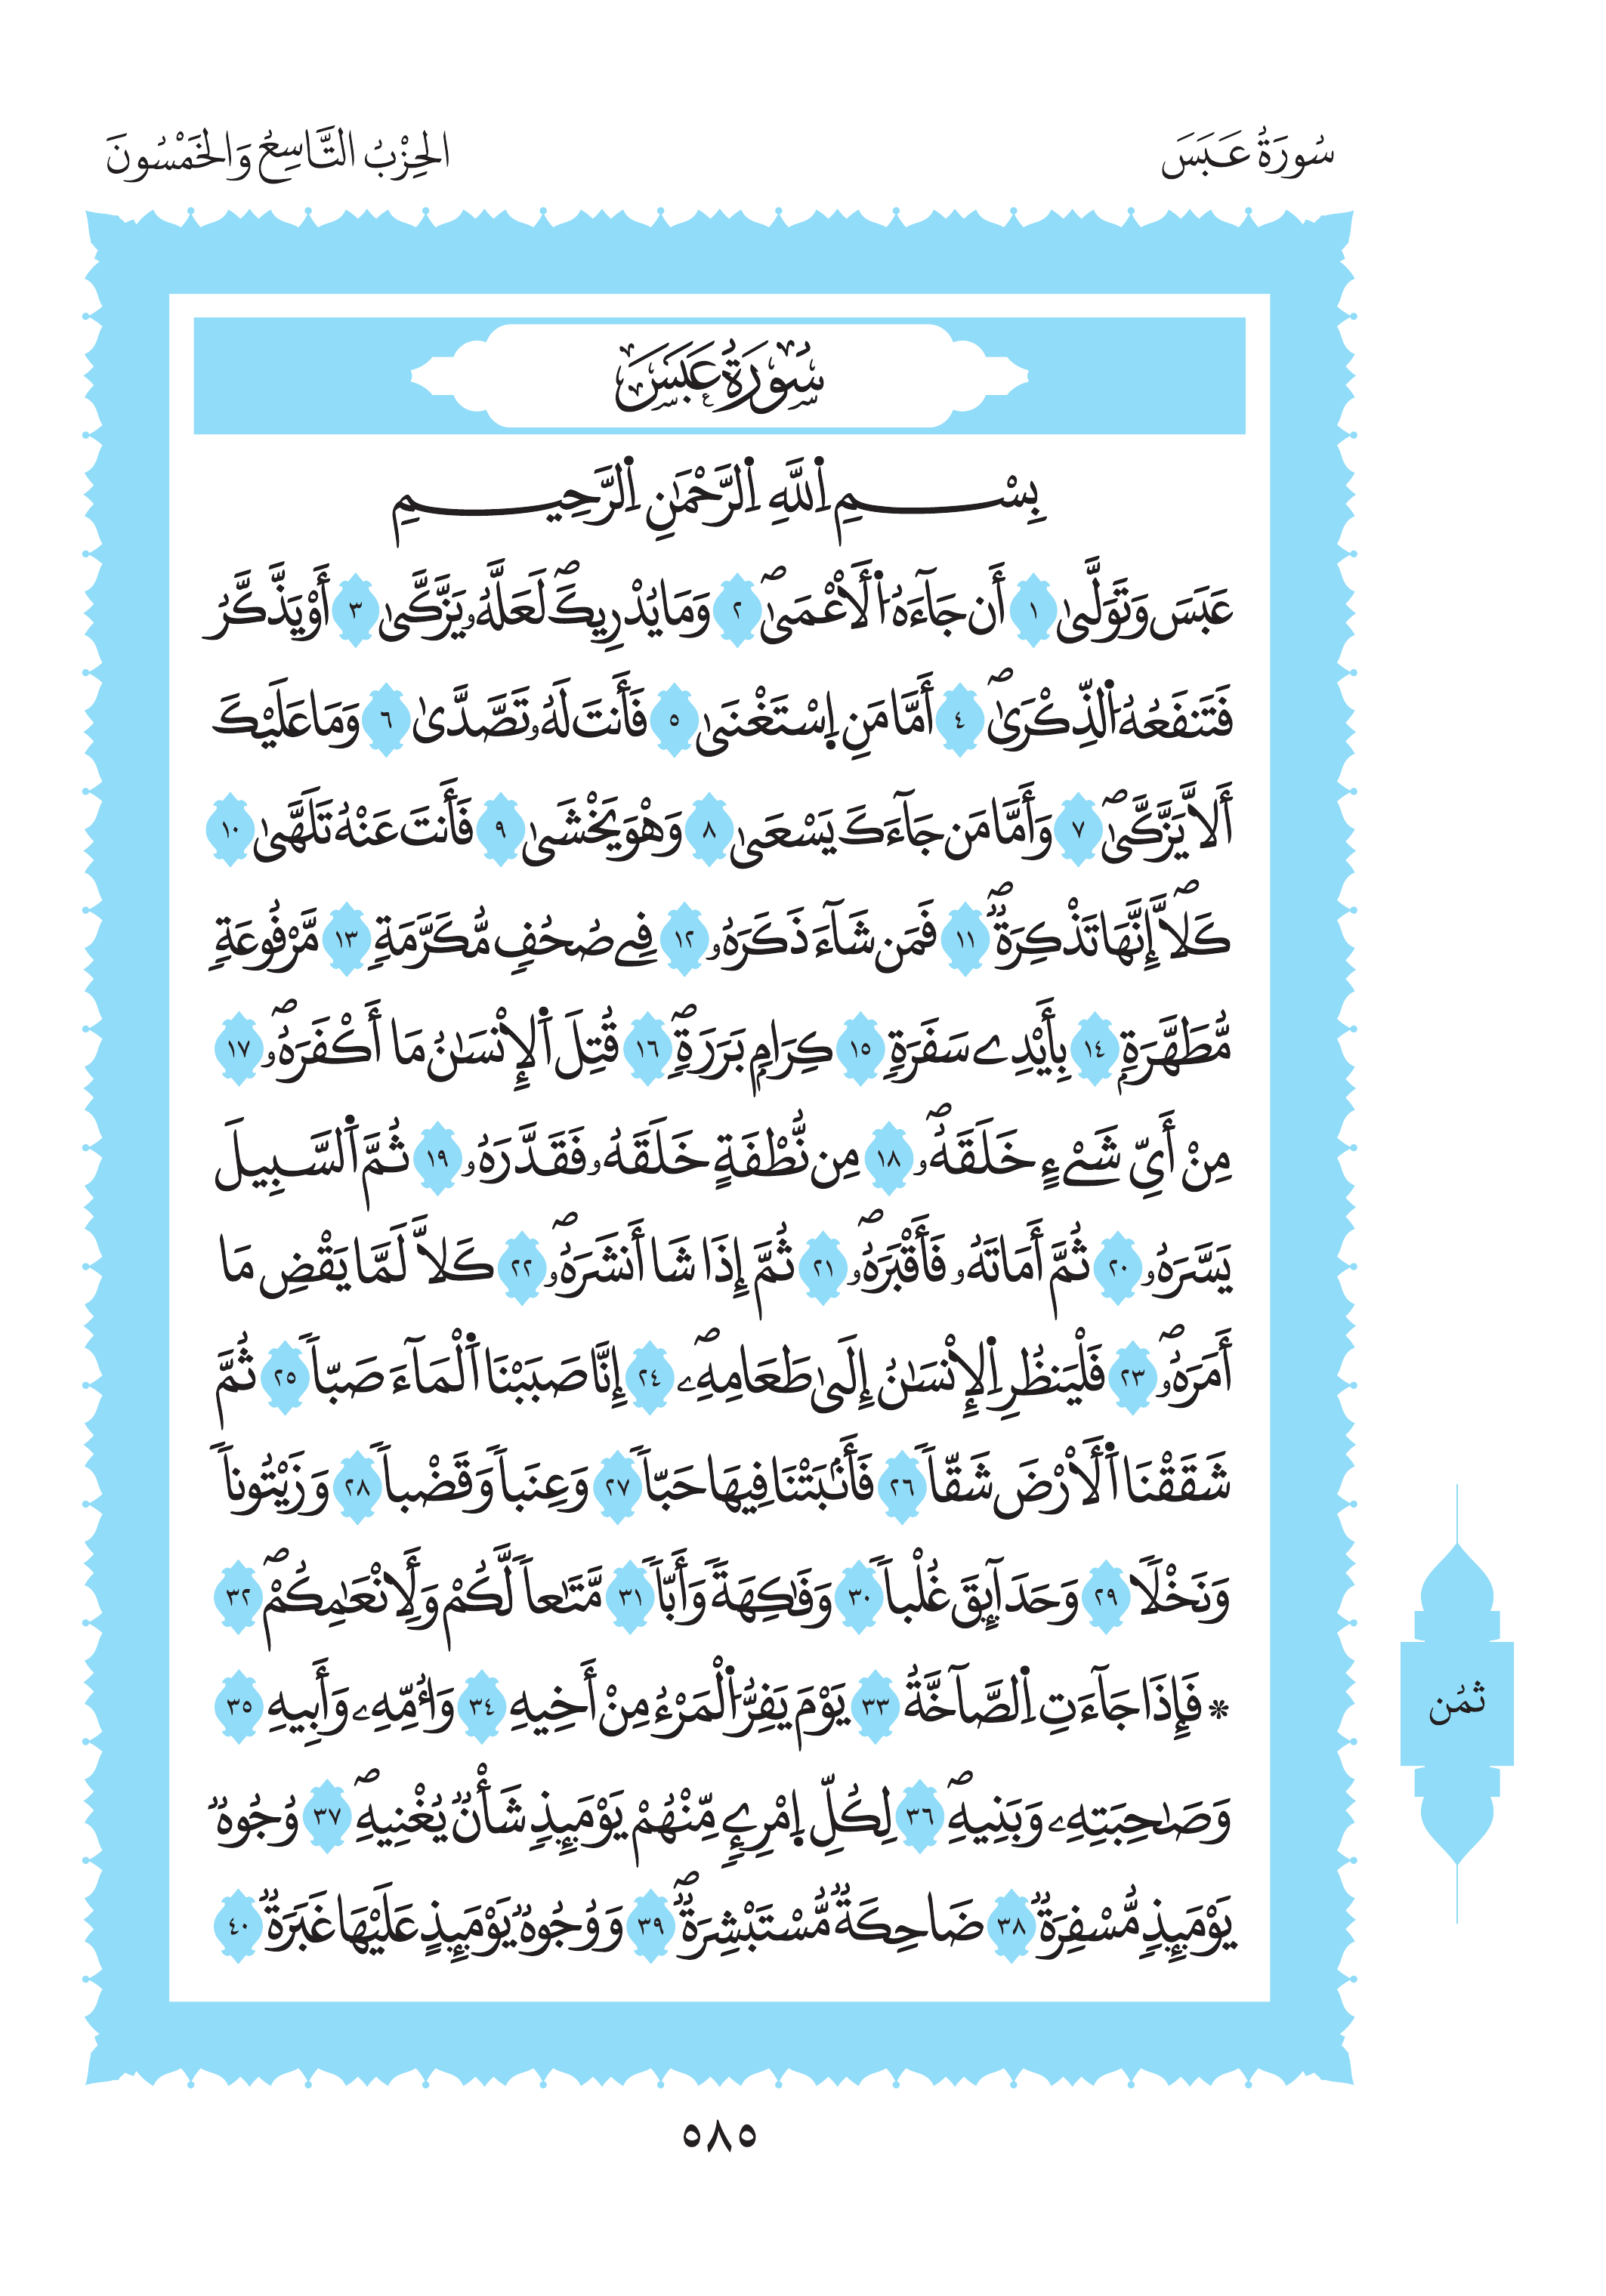 سُورَةُ عَبَسَ
الحِزْبُ التَّاسِعُ وَالخَمْسُونَ
سُورَةُ عَبَسَ
بِسْمِ اِ۬للَّهِ اِ۬لرَّحْمَٰنِ اِ۬لرَّحِيمِ
عَبَسَ وَتَوَلَّىٰ ١ أَن جَآءَهُ اُ۬لَأَعْمَىٰۖ ٢ وَمَا يُدْرِيكَۖ لَعَلَّهُۥ يَزَّكَّىٰ ٣ أَوْ يَذَّكَّرُ
فَتَنفَعُهُ اُ۬لذِّكْرَىٰۖ ٤ أَمَّا مَنِ اِ۪سْتَغْنَىٰ ٥ فَأَنتَ لَهُۥ تَصَّدَّىٰ ٦ وَمَا عَلَيْكَ
أَلَّا يَزَّكَّىٰۖ ٧ وَأَمَّا مَن جَآءَكَ يَسْعَىٰ ٨ وَهْوَ يَخْشَىٰ ٩ فَأَنتَ عَنْهُ تَلَهَّىٰ ١٠
كَلَّاۖ إِنَّهَا تَذْكِرَةٞۖ ١١ فَمَن شَآءَ ذَكَرَهُۥ ١٢ فِے صُحُفٖ مُّكَرَّمَةٖ ١٣ مَّرْفُوعَةٖ
مُّطَهَّرَةِۢ ١٤ بِأَيْدِے سَفَرَةٖ ١٥ كِرَامِۢ بَرَرَةٖۖ ١٦ قُتِلَ اَ۬لْإِنْسَٰنُ مَا أَكْفَرَهُۥۖ ١٧
مِنْ أَيِّ شَےْءٍ خَلَقَهُۥۖ ١٨ مِن نُّطْفَةٍ خَلَقَهُۥ فَقَدَّرَهُۥ ١٩ ثُمَّ اَ۬لسَّبِيلَ
يَسَّرَهُۥ ٢٠ ثُمَّ أَمَاتَهُۥ فَأَقْبَرَهُۥۖ ٢١ ثُمَّ إِذَا شَا أَنشَرَهُۥۖ ٢٢ كَلَّا لَمَّا يَقْضِ مَا
أَمَرَهُۥۖ ٢٣ فَلْيَنظُرِ اِ۬لْإِنْسَٰنُ إِلَىٰ طَعَامِهِۦۖ ٢٤ إِنَّا صَبَبْنَا اَ۬لْمَآءَ صَبّاٗ ٢٥ ثُمَّ
شَقَقْنَا اَ۬لَأَرْضَ شَقّاٗ ٢٦ فَأَنۢبَتْنَا فِيهَا حَبّاٗ ٢٧ وَعِنَباٗ وَقَضْباٗ ٢٨ وَزَيْتُوناٗ
وَنَخْلٗا ٢٩ وَحَدَآئِقَ غُلْباٗ ٣٠ وَفَٰكِهَةٗ وَأَبّاٗ ٣١ مَّتَٰعاٗ لَّكُمْ وَلِأَنْعَٰمِكُمْۖ ٣٢
* فَإِذَا جَآءَتِ اِ۬لصَّآخَّةُ ٣٣ يَوْمَ يَفِرُّ اُ۬لْمَرْءُ مِنْ أَخِيهِ ٣٤ وَأُمِّهِۦ وَأَبِيهِ ٣٥
وَصَٰحِبَتِهِۦ وَبَنِيهِۖ ٣٦ لِكُلِّ اِ۪مْرِےٕٖ مِّنْهُمْ يَوْمَئِذٖ شَأْنٞ يُغْنِيهِۖ ٣٧ وُجُوهٞ
يَوْمَئِذٖ مُّسْفِرَةٞ ٣٨ ضَاحِكَةٞ مُّسْتَبْشِرَةٞۖ ٣٩ وَوُجُوهٞ يَوْمَئِذٍ عَلَيْهَا غَبَرَةٞ ٤٠
ثمُن
٥٨٥